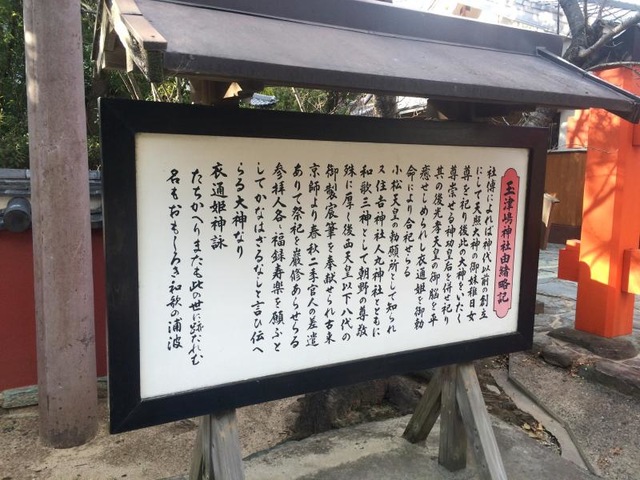 玉津嶋神社由緒略記
社傳によれば神代以前の創立
にして天照大神の御妹稚日女
尊を祀り後此の大神をいたく
尊崇せる神功皇后を併せ祀り
其の後光孝天皇の御脳を平
癒せしめられし衣通姫を御勅
命により合祀せらる
小松天皇の勅願所として知られ
又住吉神社人丸神社とともに
和歌三神として朝野の尊敬
殊に厚く後西天皇以下八代の
御製宸筆を奉献せられ古来
京師より春秋二季官人の差遣
ありて祭祀を嚴修あらせらる
参拝人各〻福録寿楽を願ふと
してかなはざるなしと言ひ伝へ
らる大神なり
衣通姫神詠
たちかへりまたも此の世に跡たれむ
名もおもしろき和歌の浦波